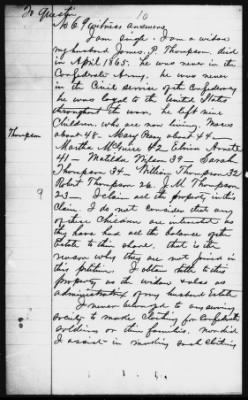 To Question
10
10 C. 9 witness answers
I am single. I am a widow
my husband James P. Thompson, died
in April 1865. he was never in the
Confederate Army. he was never
in the Civil service of the Confederacy
he was loyal to the United States
throughout the war. he left nine
Children, who are now living.
about 48 - Mary Berry about 44 -
Martha McGuire 42
41 - Matilda Nelson 39 - Sarah
Thompson 34. William Thompson 32
Robert Thompson 26. J. M. Thompson
23 - I claim all the property in this
Claim. I do not consider that any
of these Children are interested as
they have had all the balance of the
Estate to their share, that is the
reason why they are not joined in
this petition. I obtain title to this
property as the widow & also as
administratrix of my husband Estate
I never belonged to any sewing
society to make clothing for Confederate
soldiers or their families, nor did
I assist in making such clothing
Thompson
9